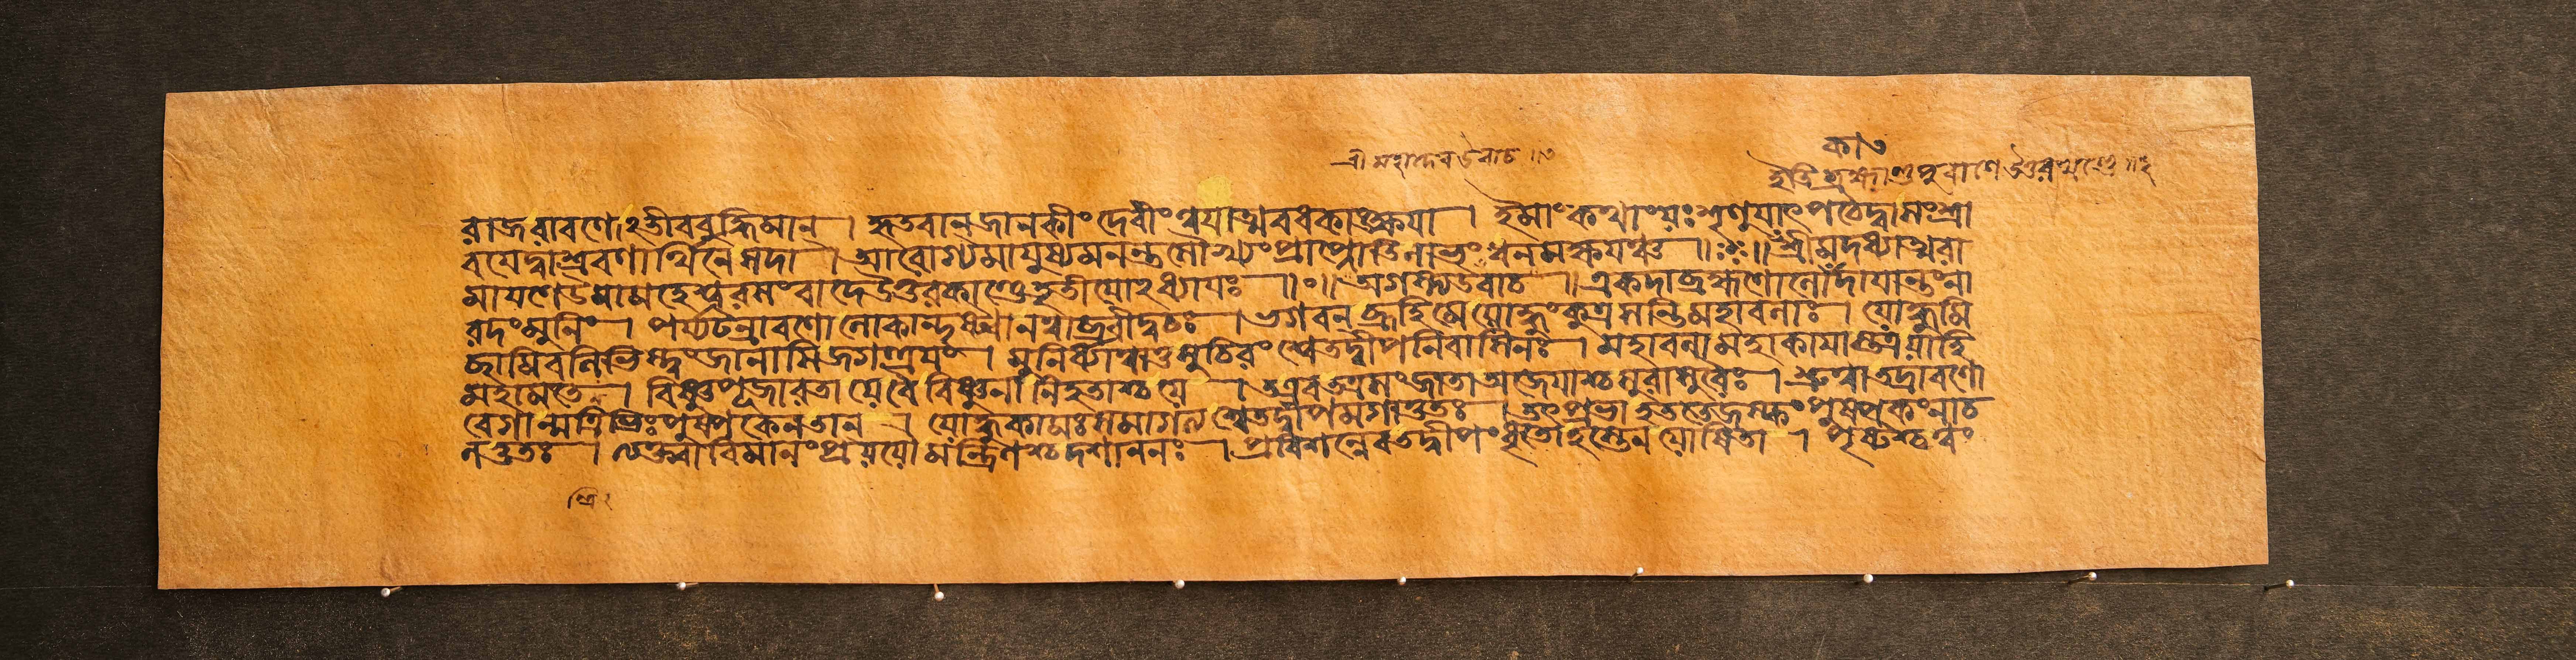 শ্রীমহাদেব উবাচ ॥৩
কাণ্ড
ইতি ব্রহ্মাণ্ডপুরাণে উত্তরকাণ্ডে ॥ ২
রাজ রাবণোঽতীববুদ্ধিমান । হৃতবান জানকীং দেবীং ত্বয়াত্মবধকাঙ্ক্ষয়া । ইমাং কথাং যঃ শৃণুয়াৎ পঠেদ্বা সংশ্রা
বয়েদ্বা শ্রবণার্থিনাং সদা । আরোগ্যমায়ুষ্যমনন্তসৌখ্যং প্রাপ্নোতি লাভং ধনমক্ষয়ঞ্চ ॥ঃ॥ শ্রীমদধ্যাত্মরা
মায়ণে উমামহেশ্বরসংবাদে উত্তরকাণ্ডে তৃতীয়োঽধ্যায়ঃ ॥০॥ অগস্ত্য উবাচ ॥ একদা ব্রহ্মণো লোকাদায়ান্তং না
রদং মুনিং । পর্য্যটন্ রাবণো লোকান্ দৃষ্ট্বা নত্বাব্রবীদ্বচঃ । ভগবন্ ব্রূহি মে যোদ্ধুং কুত্র সন্তি মহাবলাঃ । যোদ্ধুমি
চ্ছামি বলিভিস্ত্বং জানাসি জগত্ত্রয়ং । মুনির্ধ্যাত্বাহ সুচিরং শ্বেতদ্বীপনিবাসিনঃ । মহাবলা মহাকায়াস্তত্র যাহি
মহামতে । বিষ্ণুপূজারতা যে বৈ বিষ্ণুনা নিহতাশ্চ যে । ত এব তত্র সংজাতা অজেয়াশ্চ সুরাসুরৈঃ । শ্রুত্বা তদ্রাবণো
বেগান্মন্ত্রিভিঃ পুষ্পকেন তান্ । যোদ্ধুকামঃ সমাগত্য শ্বেতদ্বীপসমীপতঃ । তৎপ্রভাহততেজস্কং পুষ্পকং নাচ
লত্ততঃ । ত্যক্ত্বা বিমানং প্রযযৌ মন্ত্রিণশ্চ দশাননঃ । প্রবিশন্নেব তদ্দ্বীপং ধৃতো হস্তেন যোষিতা । পৃষ্টশ্চ ত্বং